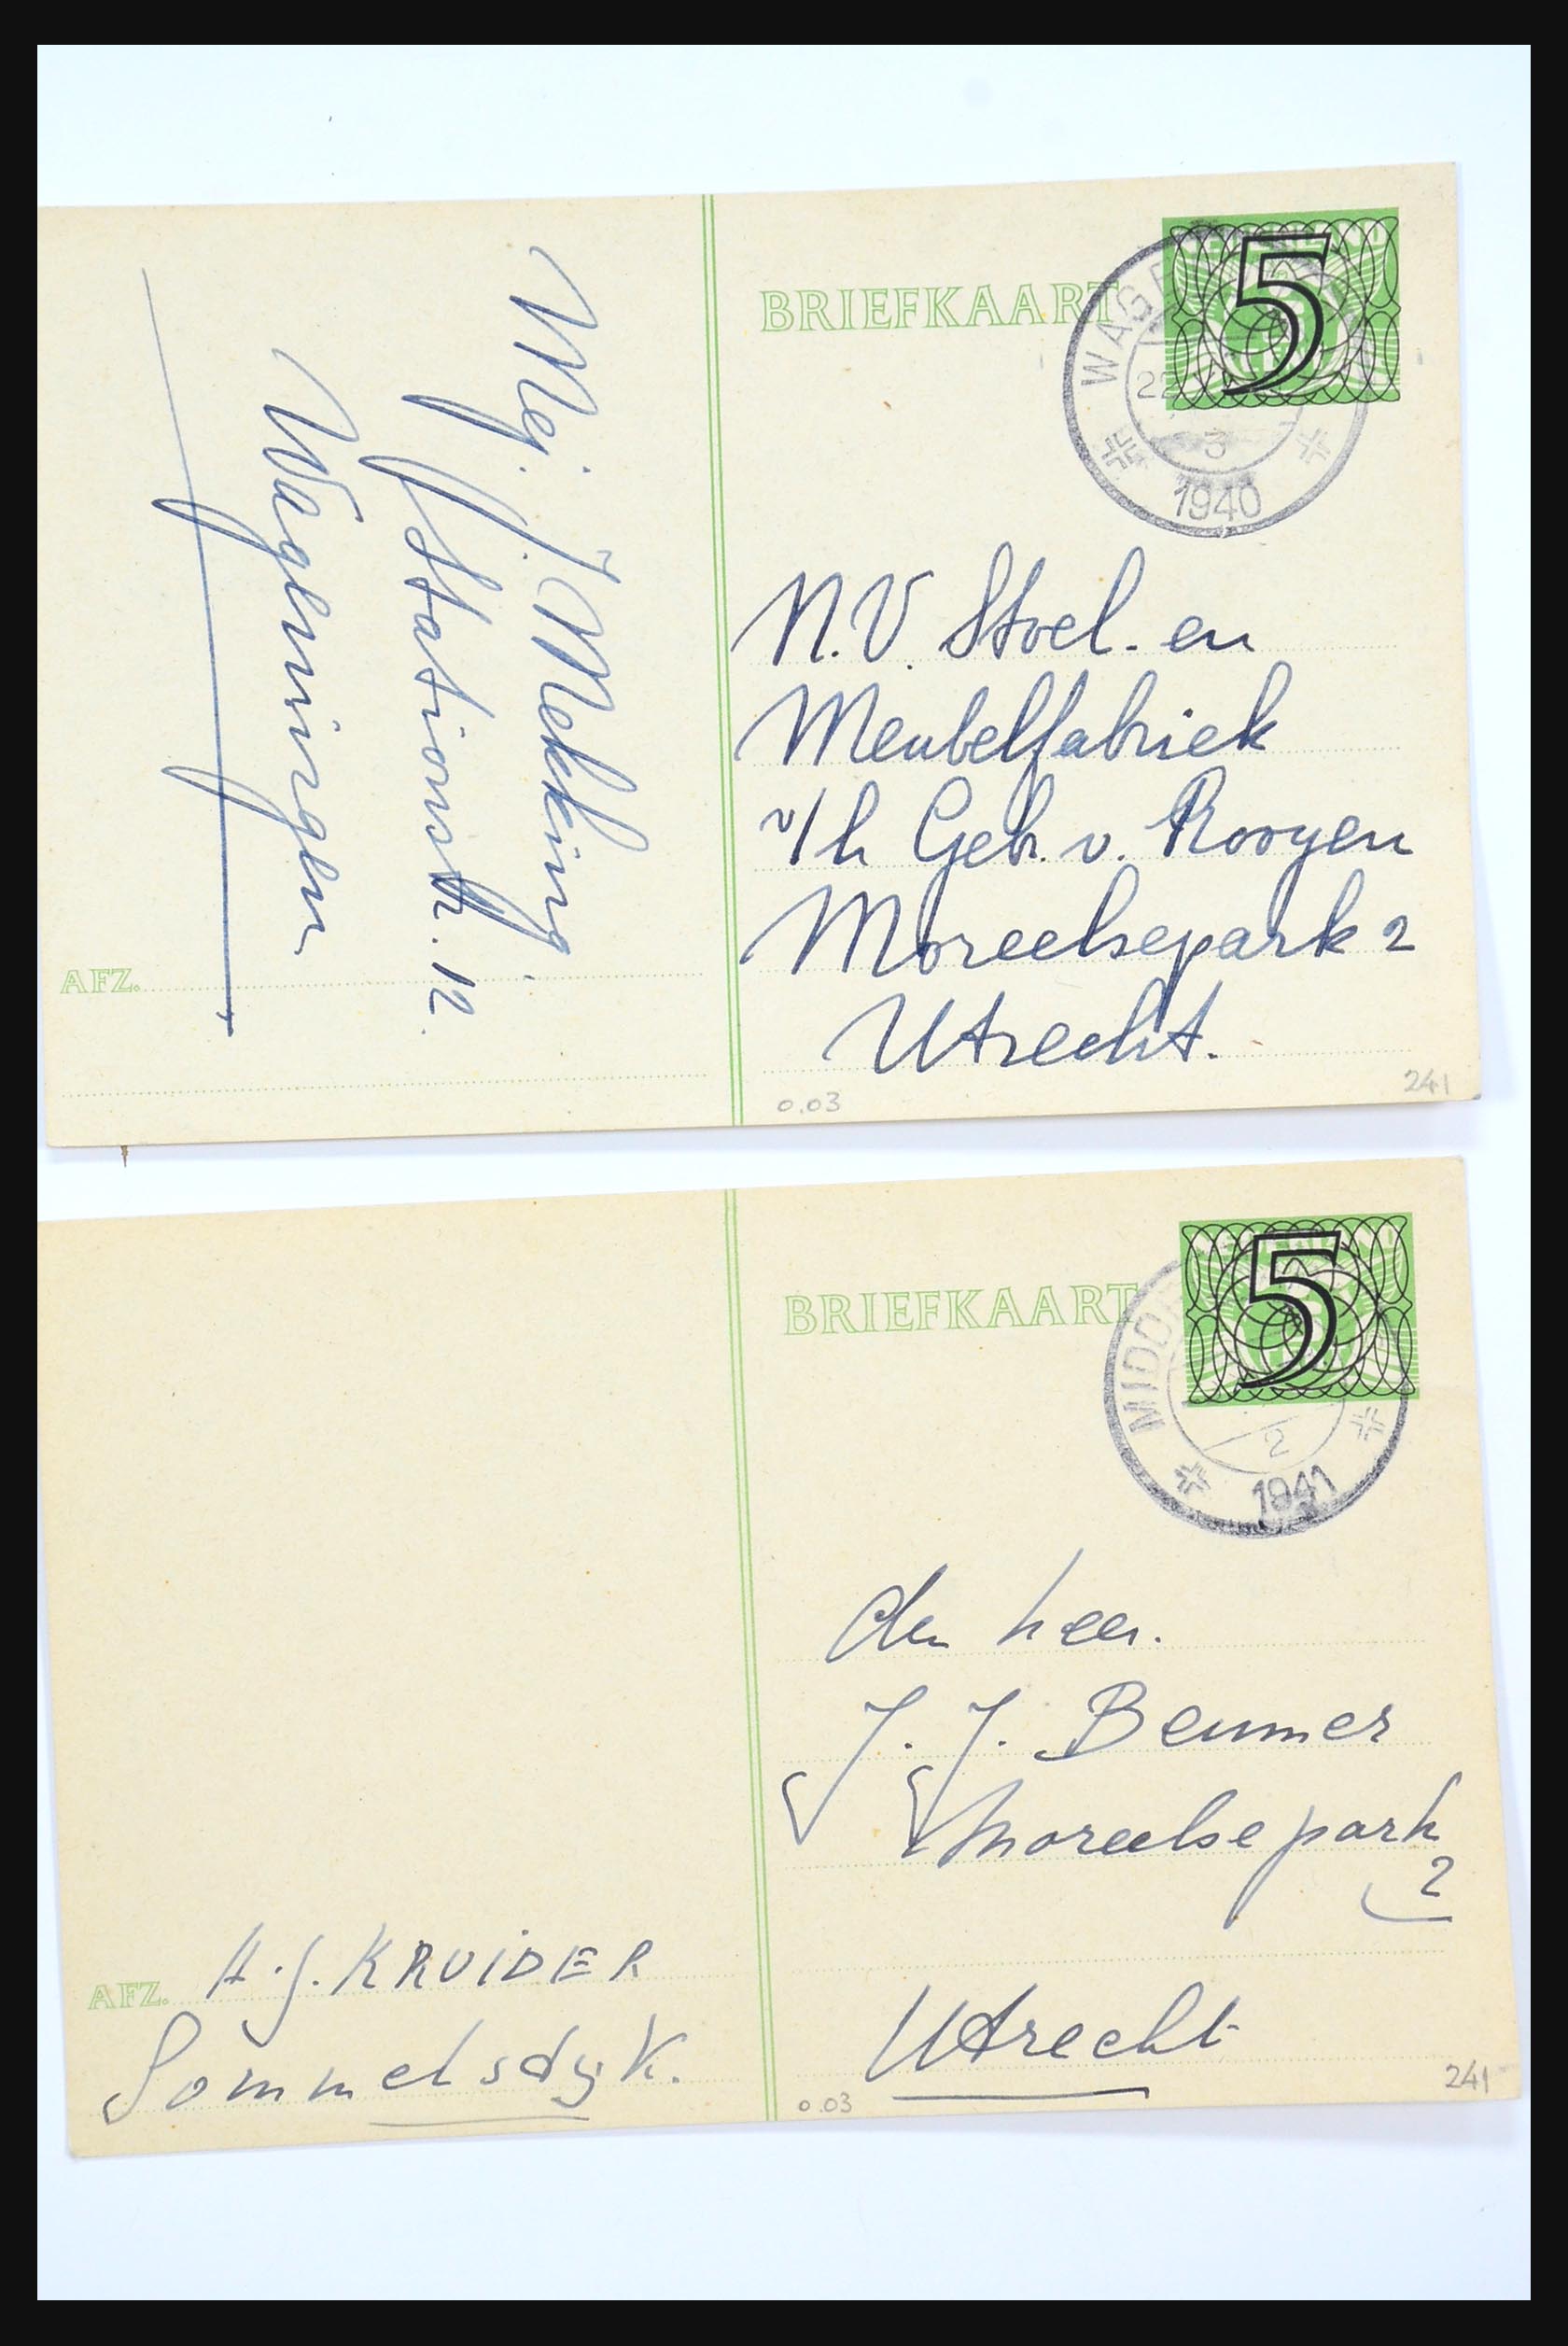 BRIEFKAART
NEDERLAND
5
WAG
22
3
1940
N.V. Stoel- en
Meubelfabriek
v/h Gebr. v. Rooyen
Moreelsepark 2
Utrecht.
Mej. J. Mekking
Stationstr. 12.
Wageningen
AFZ.
0.03
241
BRIEFKAART
NEDERLAND
5
MIDD
2
1941
den heer.
J. J. Beumer
Moreelsepark
2
Utrecht
AFZ. H.J. KRUIDER
Sommelsdyk.
0.03
241